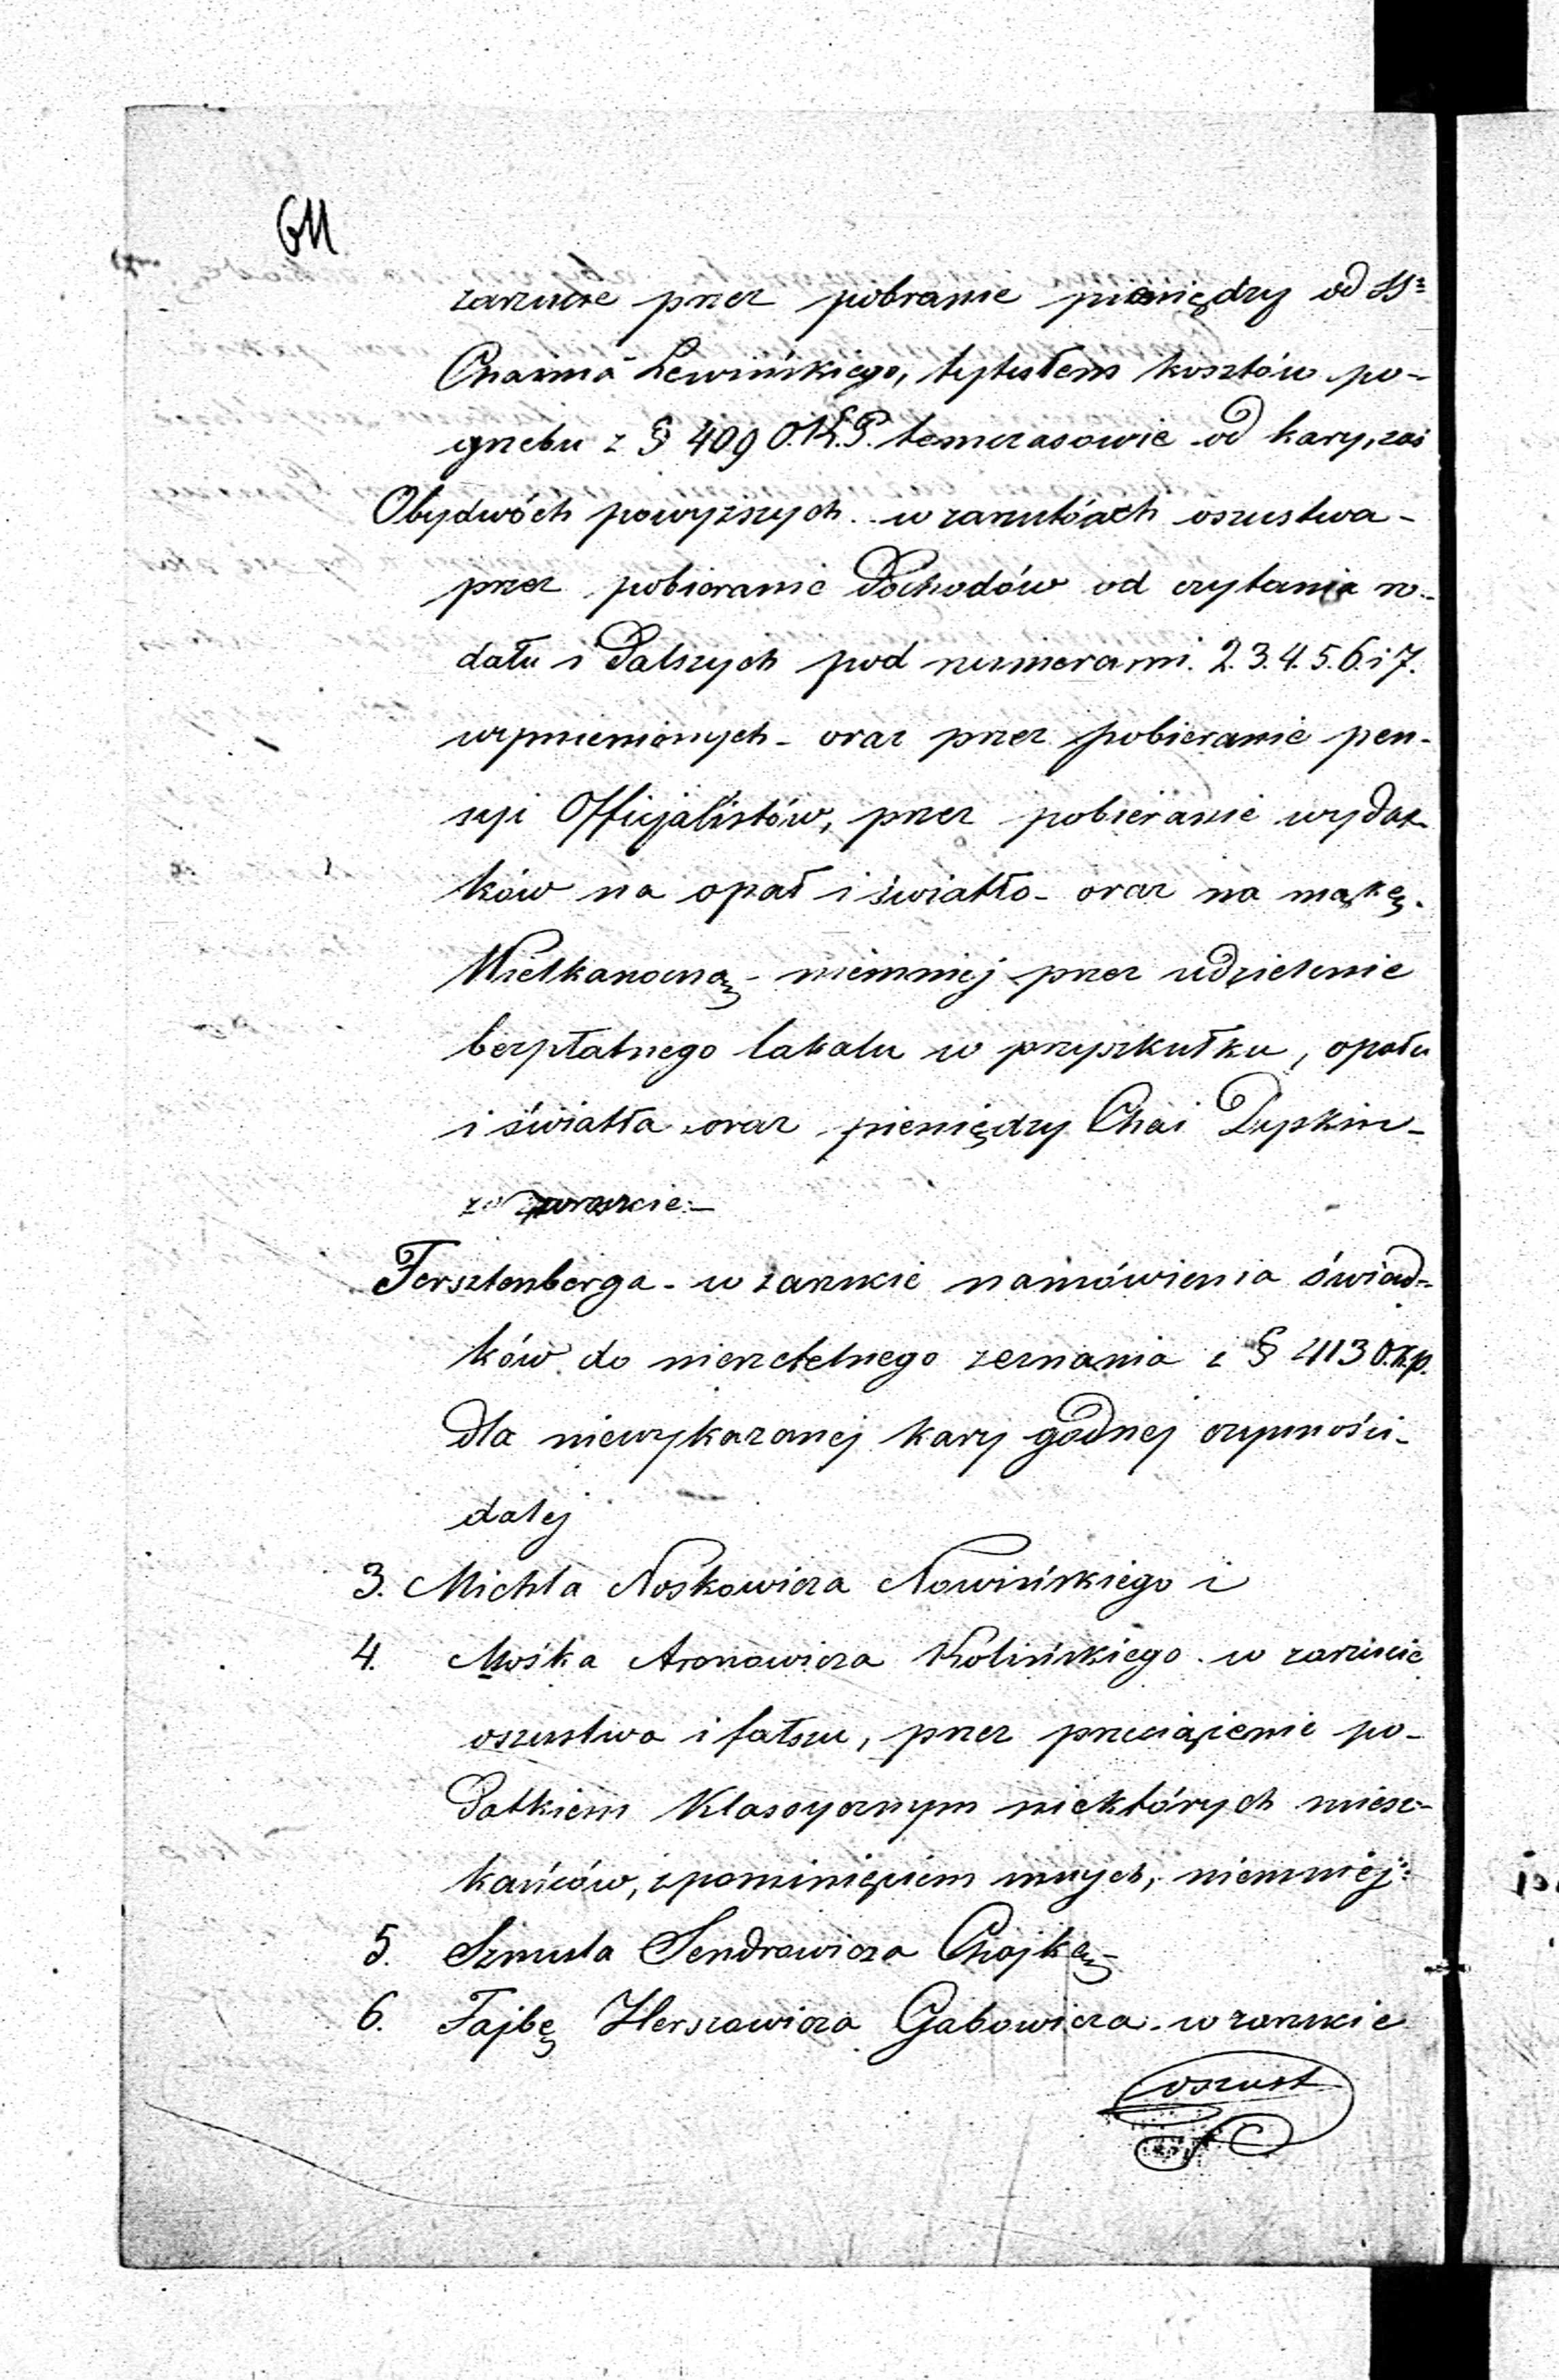 611
zarzucie przez pobranie pieniędzy od SS:
Charma Lewińskiego, tytułem kosztów po-
grzebu z § 409 O.K.G.P. tymczasowie od kary, zaś
Obydwóch powyższych w zarzutóach oszustwa-
przez pobieranie Dochodów od czytania ro-
dału i Dalszych pod numerami. 2.3.4.5.6. i 7.
wzmienionych - oraz przez pobieranie pen-
syi Officjalistów, przez pobieranie wydat-
ków na opał i światło - oraz na mąkę.
Wielkanocną - niemniej przez udzielenie
bezpłatnego lokalu w przyszkułku, opału
i światła oraz pieniędzy Chai Dupkin-
Fersztenberga - w zarzucie namówienia świad-
ków do nierzetelnego zeznania z § 413 O.K.p.
Dla niewykazanej kary godnej czynności-
dalej
3. Michla Noskowicza Nowińskiego i
4. Mośka Aronowicza Kolińskiego w zarzucie
oszustwa i fałszu, przez przeciążenie po-
Datkiem Klassycznym niektórych miesz-
kańców, z pominięciem innych, niemniej:
5. Szmula Sendrowicza Chojkę-
6. Fajbę Herszowicza Gabowicza - w zarzucie
oszust